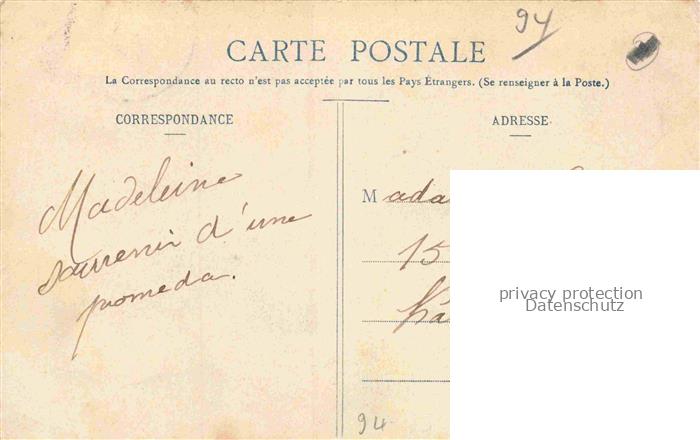 94
CARTE POSTALE
La Correspondance au recto n'est pas acceptée par tous les Pays Étrangers. (Se renseigner à la Poste.)
CORRESPONDANCE
ADRESSE
Madeleine
souvenir d'une
promeda.
Mada
15
privacy protection
Datenschutz
94